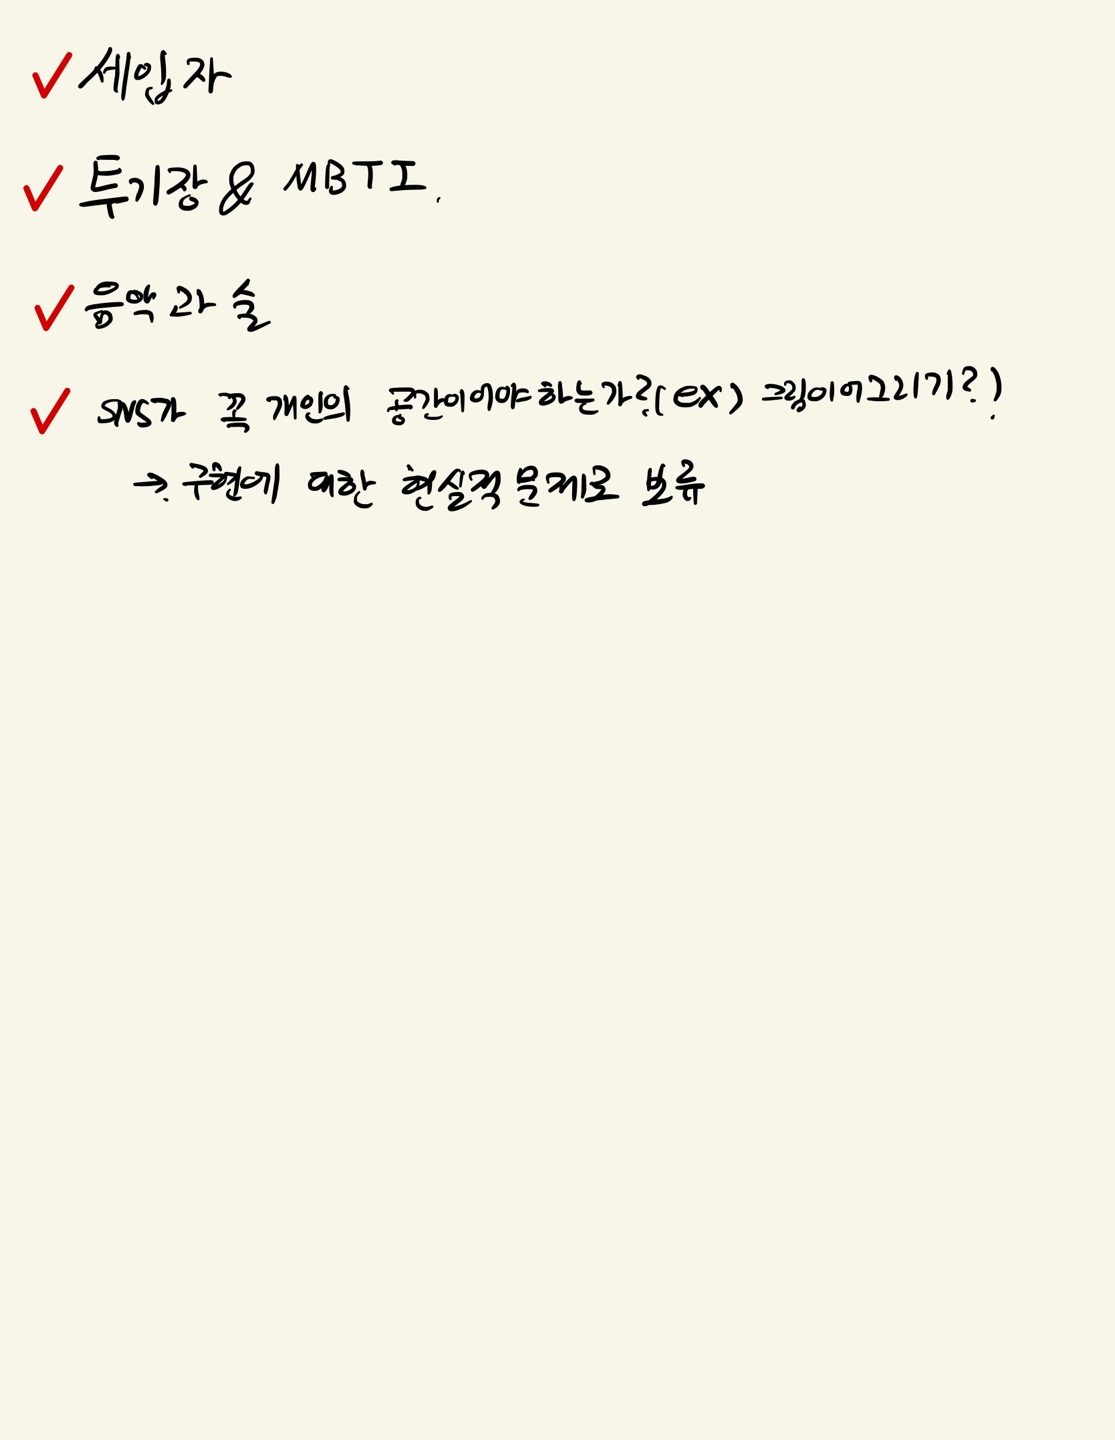 ✓ 세입자
✓ 투기장 & MBTI.
✓ 음악과 술
✓ SNS가 꼭 개인의 공간이어야하는가?(ex) 그림이어그리기?)
→ 구현에 대한 현실적 문제로 보류